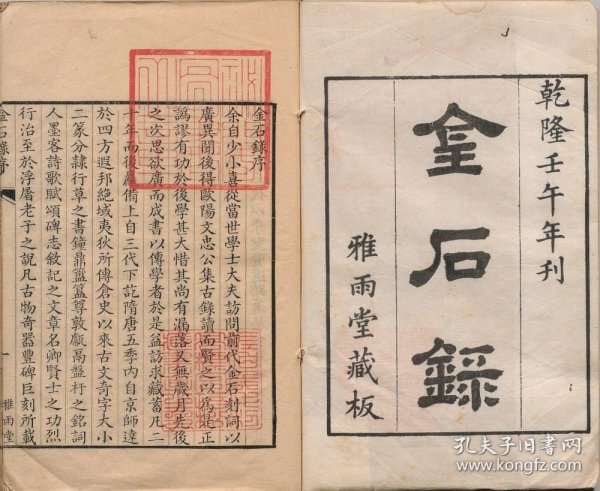 乾隆壬午年刊
金石錄
雅雨堂藏板
金石錄序
余自少小喜從當世學士大夫訪問前代金石刻詞以
廣異聞後得歐陽文忠公集古錄讀而賢之以為是正
譌謬有功於後學甚大惜其尚有漏落又無歲月先後
之次思欲廣而成書以傳學者於是益訪求藏蓄凡二
十年而後麤備上自三代下訖隋唐五季內自京師達
於四方遐邦絶域夷狄所傳倉史以來古文奇字大小
二篆分隷行草之書鐘鼎簠簋尊敦甗鬲盤杅之銘詞
人墨客詩歌賦頌碑志敘記之文章名卿賢士之功烈
行治至於浮屠老子之說凡古物奇器豐碑巨刻所載
金石錄序
雅雨堂
孔夫子旧书网
www.kongfz.com